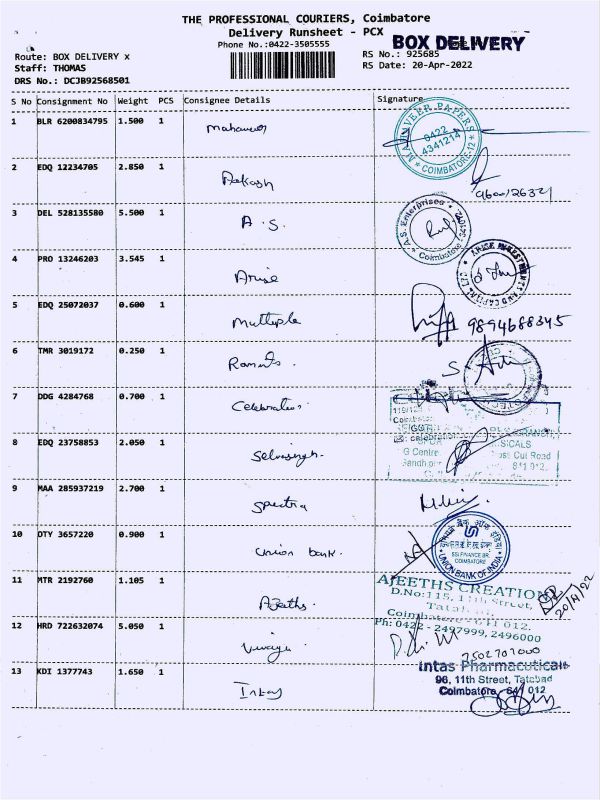 THE PROFESSIONAL COURIERS, Coimbatore
Delivery Runsheet - PCX
Phone No.:0422-3505555
BOX DELIVERY
Route: BOX DELIVERY x
RS No.: 925685
Staff: THOMAS
RS Date: 20-Apr-2022
DRS No.: DCJB92568501
S No Consignment No Weight PCS Consignee Details Signature
1 BLR 6200834795 1.500 1
MAHAVEER PAPERS
0422
4341214
* COIMBATORE-12 *
2 EDQ 12234705 2.850 1 Aakash
3 DEL 528135580 5.500 1 A.S.
A.S. Enterprises
Coimbatore
4 PRO 13246203 3.545 1 Arise
ARISE INVESTMENTS AND CAPITAL
5 EDQ 25072037 0.600 1 Multiple
9894688345
6 TMR 3019172 0.250 1
7 DDG 4284768 0.700 1 Celebration
8 EDQ 23758853 2.050 1 Selvasingh.
G Centre
Cut Road
9 MAA 285937219 2.700 1 Spectra
10 DTY 3657220 0.900 1 Union bank.
SSI FINANCE BR.
COIMBATORE
UNION BANK OF INDIA
11 MTR 2192760 1.105 1 Ajeeths.
AJEETHS CREATION
D.No:115, 11th Street,
Tatabad,
Coimbatore - 641 012.
Ph: 0422 - 2497999, 2496000
20/4/22
12 HRD 722632074 5.050 1
7502707000
13 KDI 1377743 1.650 1 Intas
Intas Pharmaceuticals
96, 11th Street, Tatabad
Coimbatore - 641 012